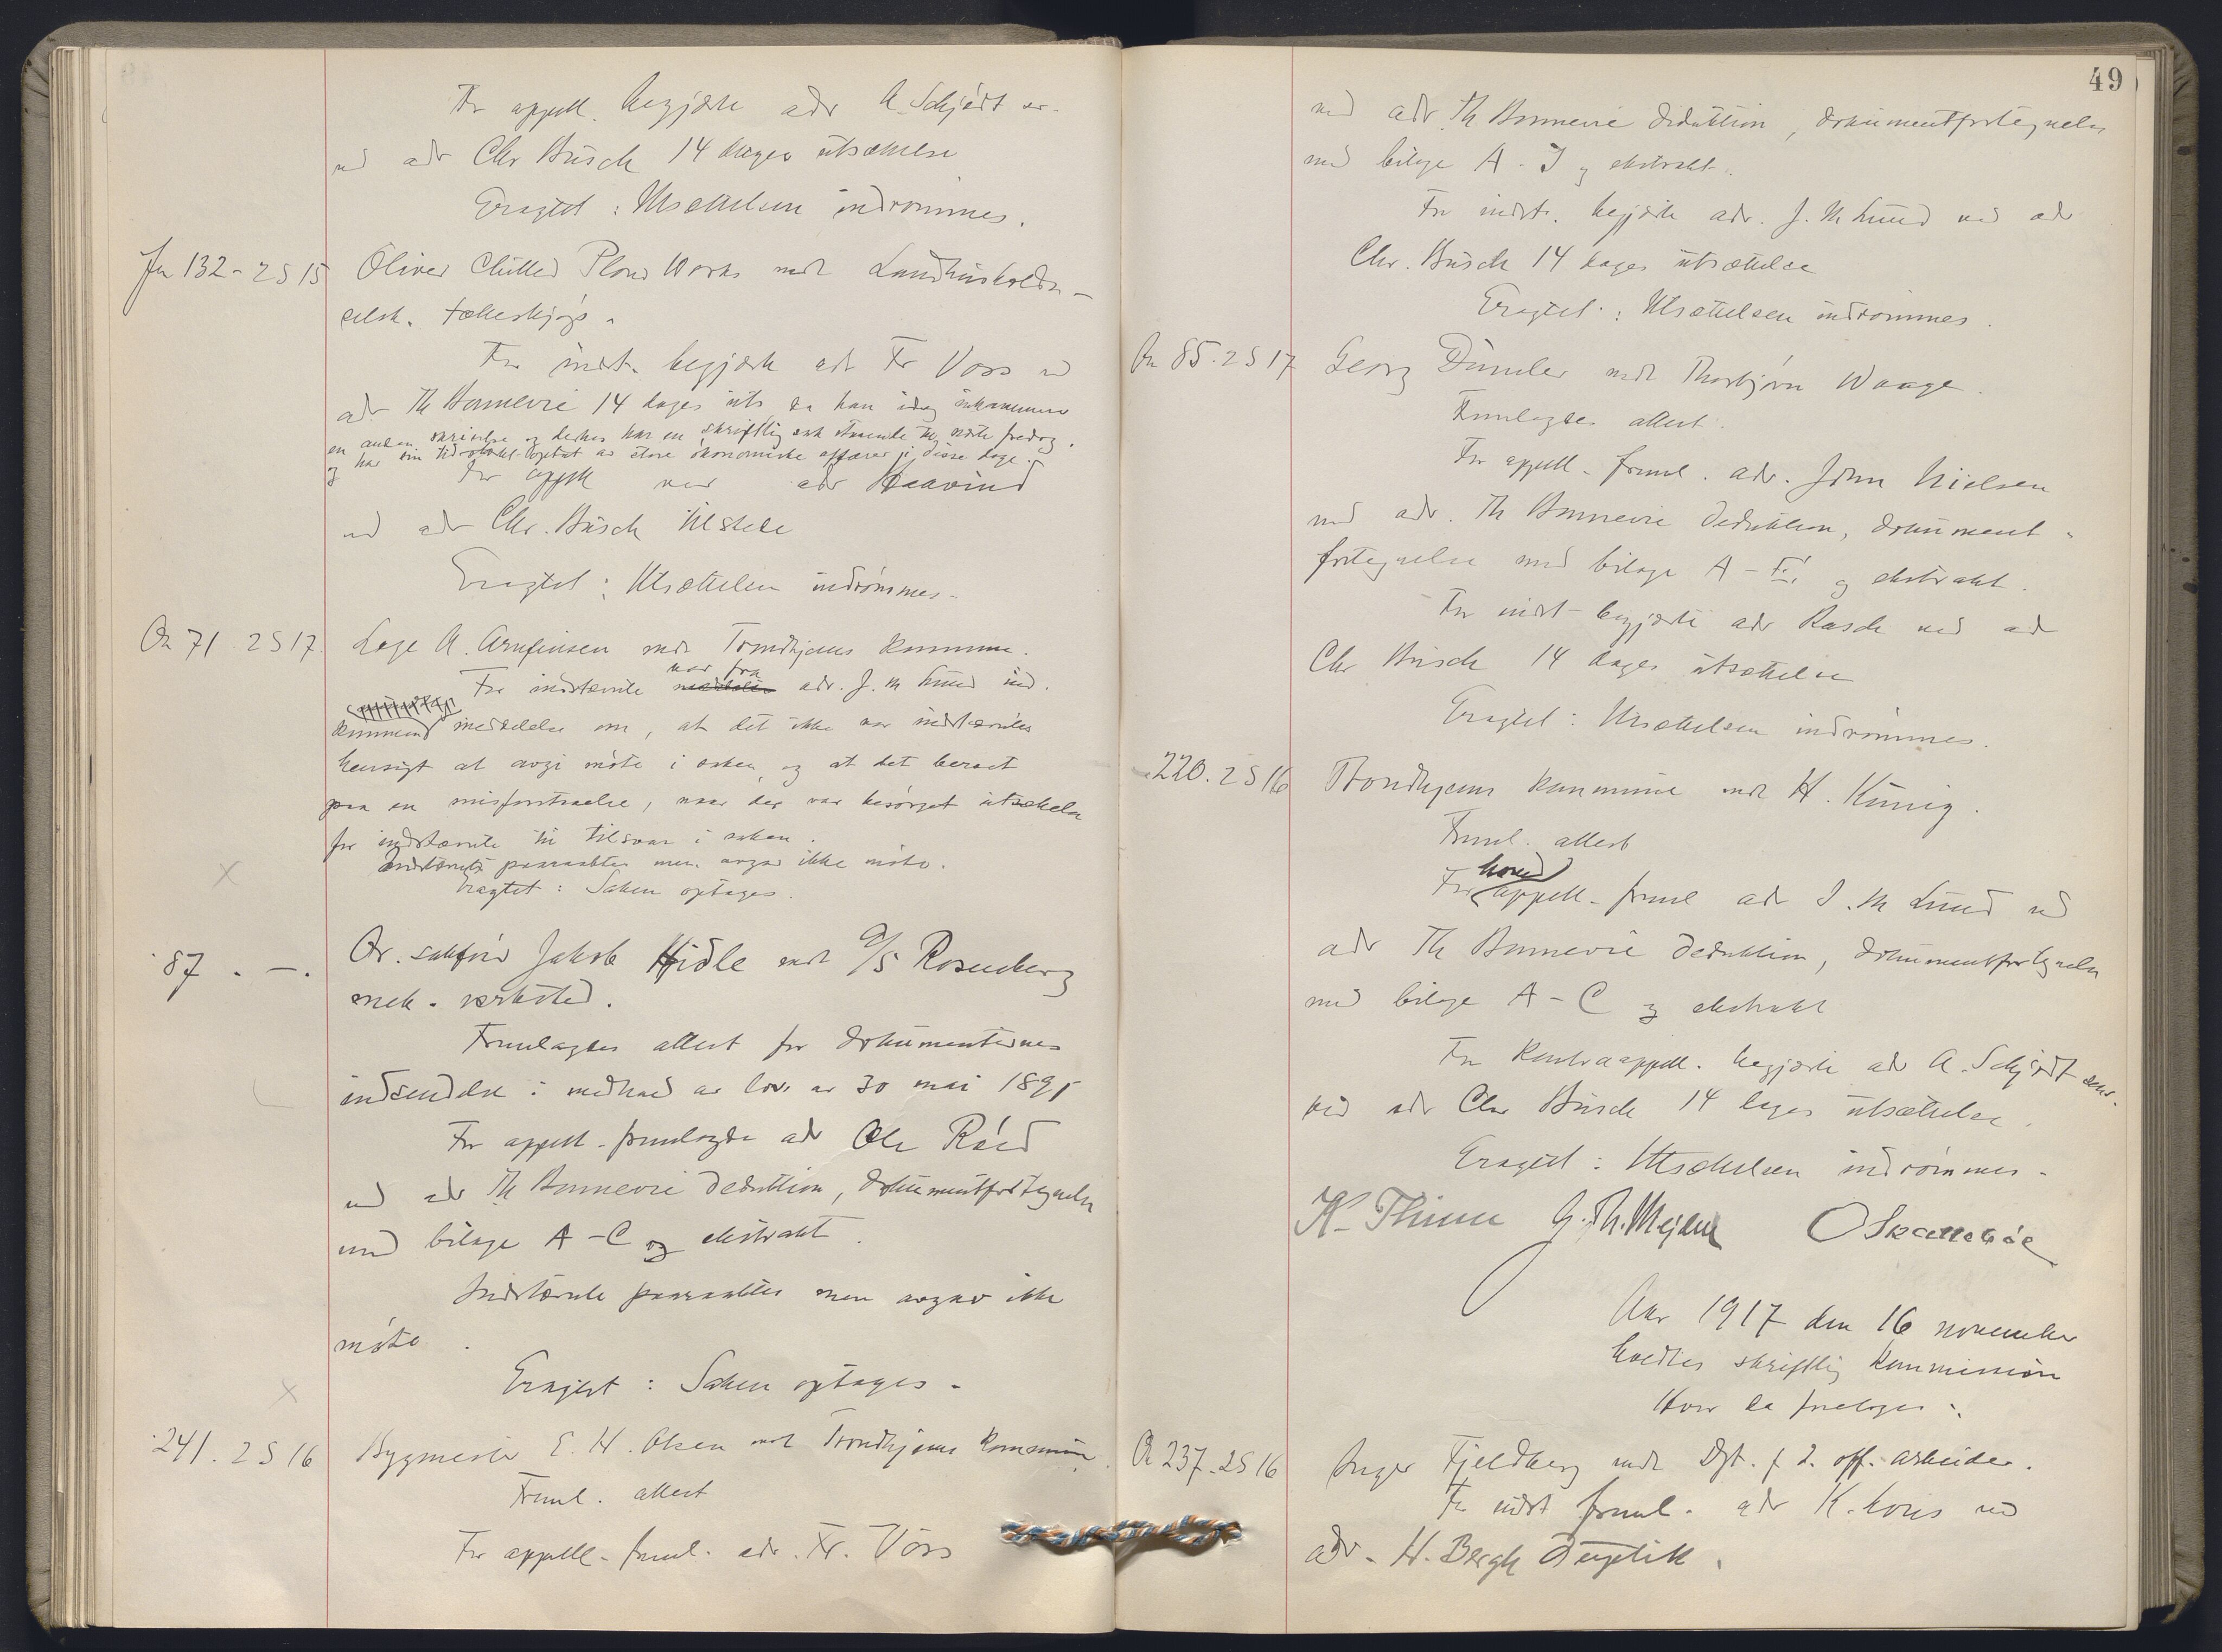 For appell. begjærte adv A. Schjødt sr.
ved adv Chr Busch 14 dages utsættelse
Eragtet: Utsættelsen indrømmes.
fra 132 - 2 S 15 Oliver Chilled Plow Works mot Landhusholdn-
selsk. fælleskjøp.
For indst. begjærte adv Fr Voss ved
adv Th Bonnevie 14 dages uts da han idag
en anden skrivelse og derhos har en skriftlig sak næste fredag.
og har sin tid optat av store økonomiske affærer i disse dage.
For appell var adv Haavind
ved adv Chr. Busch tilstede
Eragtet: Utsættelsen indrømmes.
Or 71. 2 S 17. Lage A. Arnfinsen mot Trondhjems kommune.
For indstævnte var fra adv. J. M Lund ind-
kommend meddelelse om, at det ikke var indstævntes
hensigt at avgi møte i saken, og at det beroet
paa en misforstaaelse, naar der var besørget utsættelse
for indstævnte til tilsvar i saken.
Indstævnte paaraabtes men avgav ikke møte.
Eragtet: Saken optages.
87. —. Or. sakfører Jakob Hidle mot A/S Rosenberg
mek. verksted.
Fremlagdes attest for dokumenternes
indsendelse i medhold av lov av 30 mai 1891
For appell. fremlagde adv Ole Røed
ved adv Th Bonnevie deduktion, dokumentfortegnelse
med bilage A - C og ekstrakt.
Indstævnte paaraabtes men avgav ikke
møte.
Eragtet: Saken optages.
241. 2 S 16 Bygmester E. H. Olsen mot Trondhjems kommune.
Freml. attest
For appell. freml. adv. Fr. Voss
49
ved adv Th Bonnevie deduktion, dokumentfortegnelse
med bilage A - J og ekstrakt.
For indst. begjærte adv. J. M Lund ved adv
Chr. Busch 14 dages utsættelse
Eragtet: Utsættelsen indrømmes.
Or 85. 2 S 17 Georg Dümler mot Thorbjørn Waage.
Fremlagdes attest.
For appell. freml. adv. John Nielsen
ved adv. Th Bonnevie deduktion, dokument-
fortegnelse med bilage A - og ekstrakt.
For indst begjærte adv Rasch ved adv
Chr Busch 14 dages utsættelse
Eragtet: Utsættelsen indrømmes.
220. 2 S 16 Trondhjems kommune mot H. König.
Freml. attest
For hoved appell. freml adv J. M Lund ved
adv Th Bonnevie deduktion, dokumentfortegnelse
med bilage A - C og ekstrakt
For kontraappell. begjærte adv A. Schjødt senr.
ved adv Chr Busch 14 dages utsættelse.
Eragtet: Utsættelsen indrømmes.
K. Thinn G. Th. Mejdell O Skattebøe
Aar 1917 den 16 november
holdtes skriftlig kommission
Hvor da foretoges:
Or 237. 2 S 16 Inger Fjeldberg mot Dpt. f d. off. arbeider.
For indst freml. adv K. ved
adv. H. Bergh duplik.